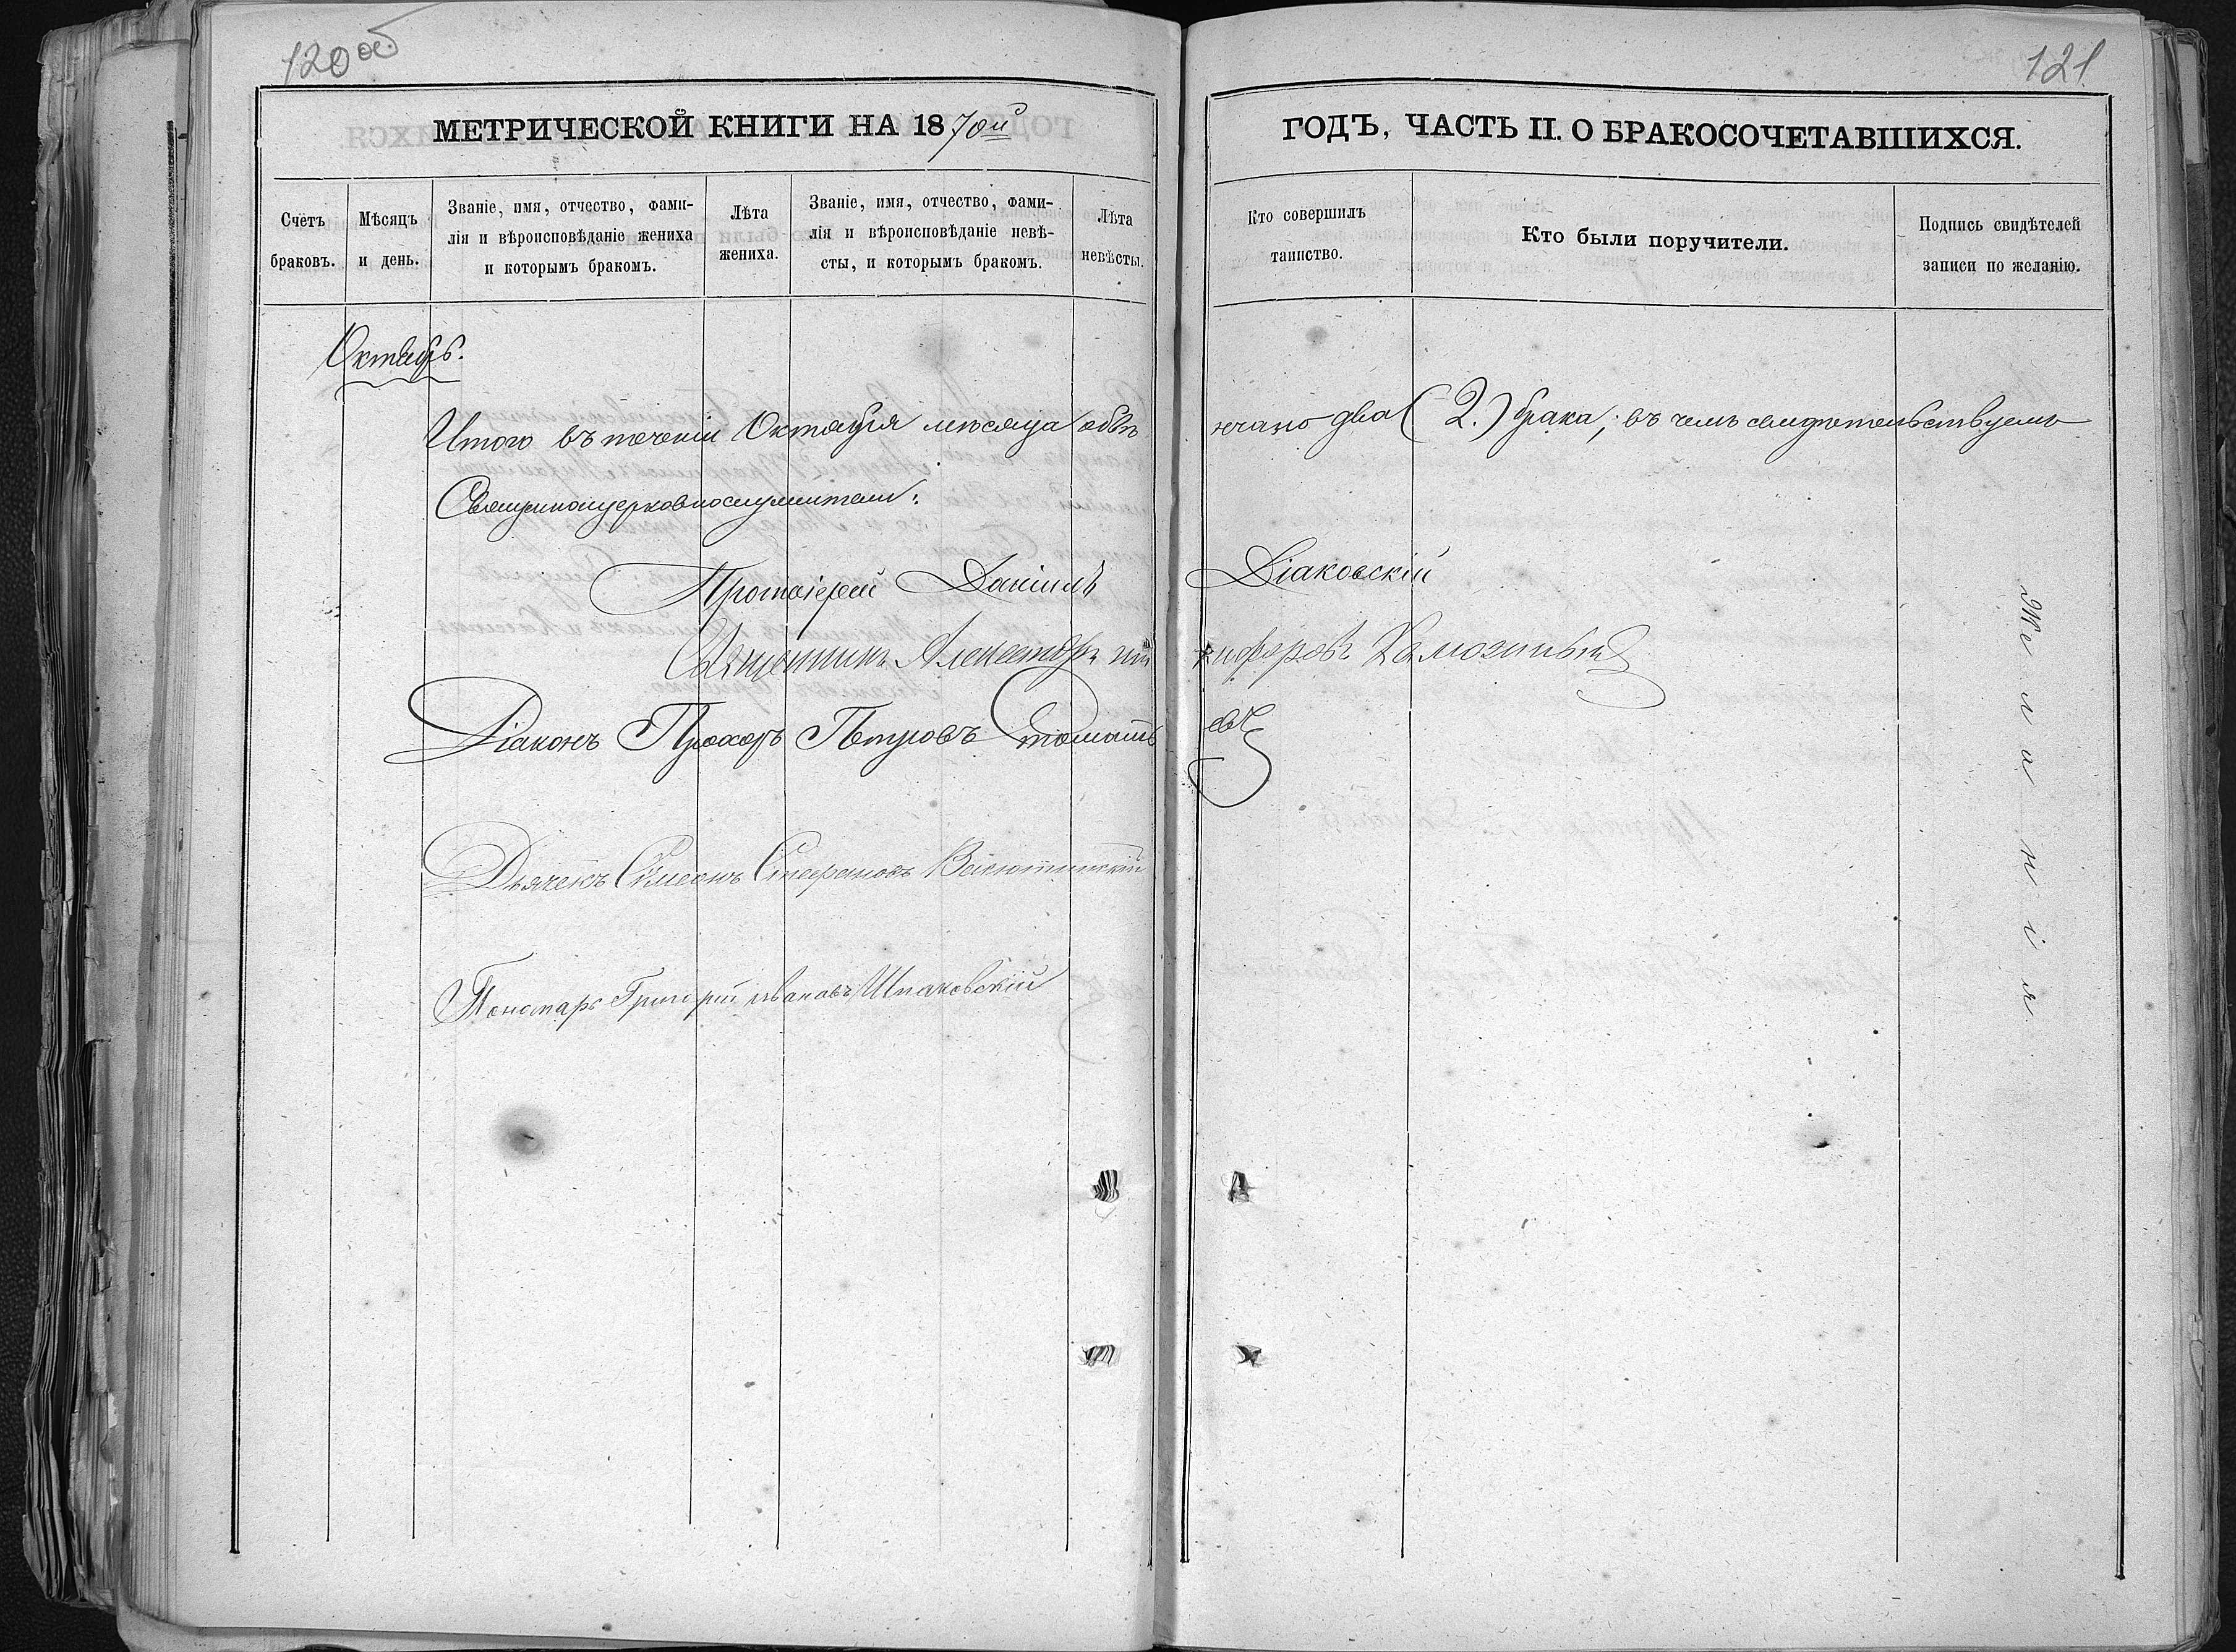 120 об
121
МЕТРИЧЕСКОЙ КНИГИ НА 1870й ГОДЪ, ЧАСТЬ II. О БРАКОСОЧЕТАВШИХСЯ.
Счетъ браковъ.
Мѣсяцъ и день.
Званіе, имя, отчество, фами-
лія и вѣроисповѣданіе жениха
и которымъ бракомъ.
Лѣта жениха.
Званіе, имя, отчество, фами-
лія и вѣроисповѣданіе невѣ-
сты, и которымъ бракомъ.
Лѣта невѣсты.
Кто совершилъ таинство.
Кто были поручители.
Подпись свидѣтелей
записи по желанію.
Октябрь.
Итого въ теченіи Октября мѣсяца обвѣнчано два (2.) брака; въ чемъ свидѣтельствуемъ
Священноцерковнослужители:
Протоіерей Даніилъ Діаковскій
Священникъ Александръ
Діаконъ Прохоръ Петровъ
Дьячекъ Сѵмеонъ Стефановъ
Пономарь Григорій Ивановъ Шпаковскій
Желанія